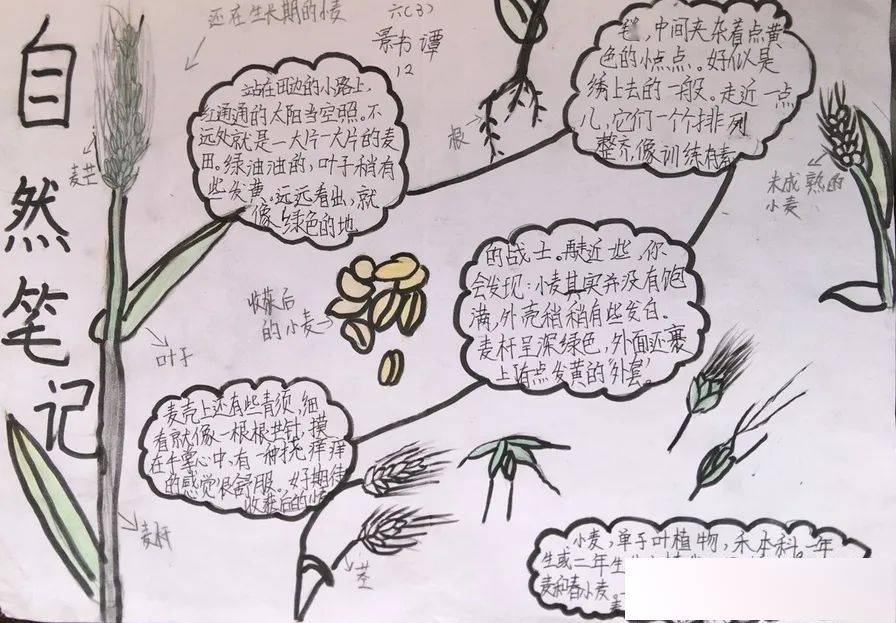 自然笔记
还在生长期的小麦
六(3)
景书谭
12
麦芒
站在田边的小路上,
红通通的太阳当空照。不
远处就是一大片一大片的麦
田。绿油油的,叶子稍有
些发黄。远远看出,就
像绿色的地
根
毯,中间夹杂着点黄
色的小点点。好似是
绣上去的一般。走近一点
儿,它们一个个排列
整齐,像训练有素
未成熟的
小麦
的战士。再走近些,你
会发现:小麦其实并没有饱
满,外壳稍稍有些发白.
麦杆呈深绿色,外面还裹
上有点发黄的"外套"。
收获后
的小麦
叶子
麦壳上还有些青须,细
看就像一根根
在手掌心中,有一种挠痒痒
的感觉很舒服。好期待
收获后的小
麦杆
茎
小麦,单子叶植物,禾本科,一年
生或二年生
麦和春小麦。